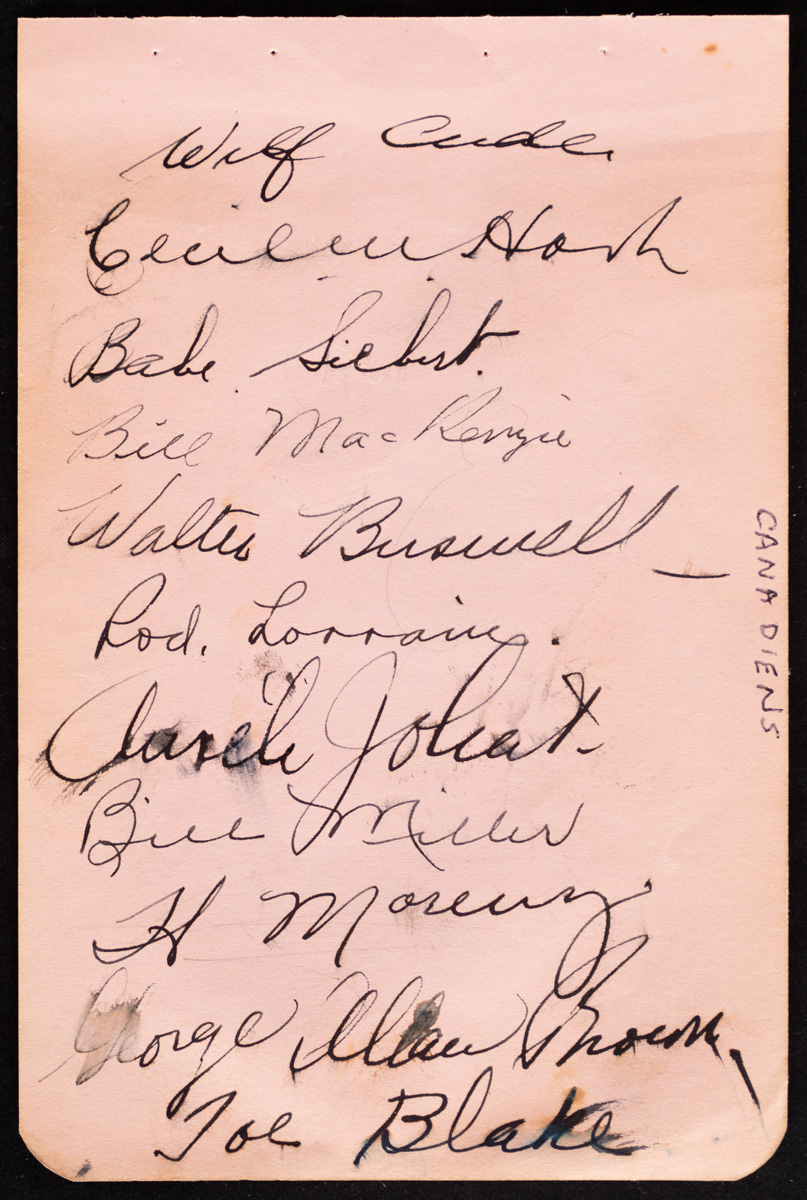 Wilf Cude.
Cecil M Hart
Babe Siebert.
Bill MacKenzie
Walter Buswell
Rod. Lorrain.
Aurèle Joliat.
Bill Miller
H Morenz.
George Allan Brown.
Toe Blake
CANADIENS